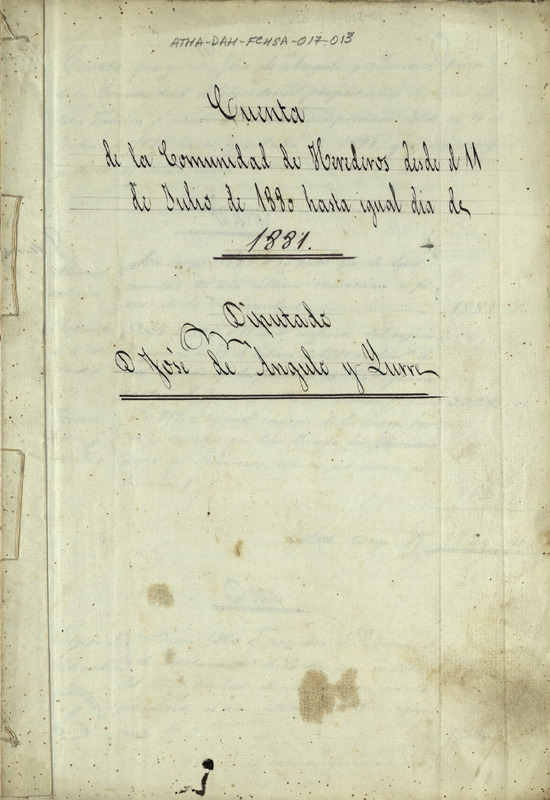 ATHA-DAH-FCHSA-017-013
Cuenta
de la Comunidad de Herederos desde el 11
de Julio de 1880 hasta igual dia de
1881.
Diputado
D José de Angulo y